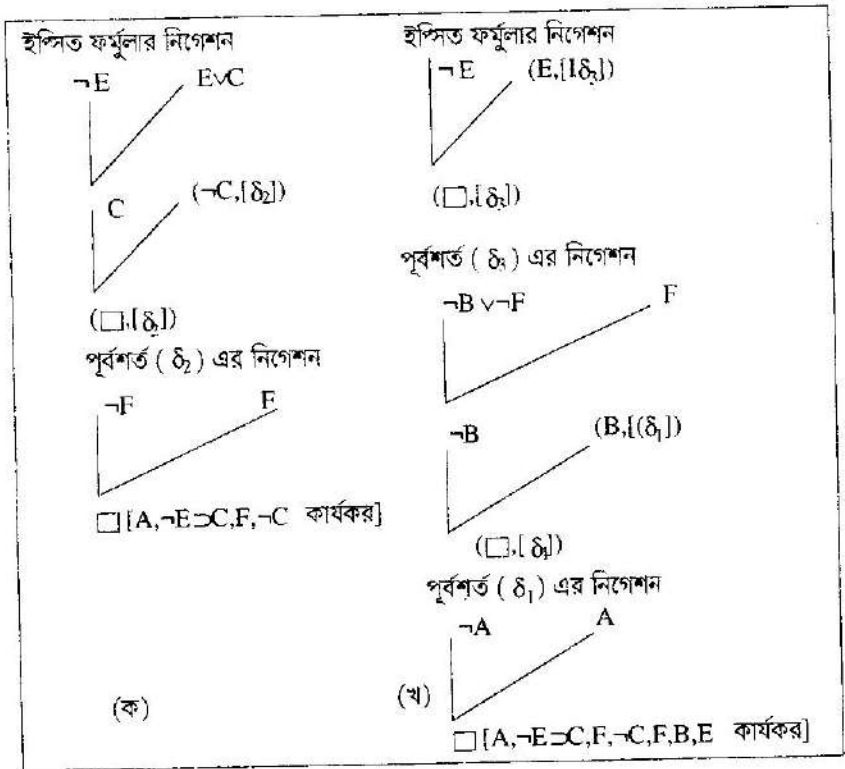 ইপ্সিত ফর্মুলার নিগেশন
¬E E∨C
C (¬C,[δ₂])
(□,[δ₂])
পূর্বশর্ত ( δ₂ ) এর নিগেশন
¬F F
□ [A,¬E⊃C,F,¬C কার্যকর]
(ক)
ইপ্সিত ফর্মুলার নিগেশন
¬E (E,[1δ₃])
(□,[δ₃])
পূর্বশর্ত ( δ₃ ) এর নিগেশন
¬B ∨¬F F
¬B (B,[(δ₁])
(□,[δ₁])
পূর্বশর্ত ( δ₁ ) এর নিগেশন
¬A A
(খ)
□ [A,¬E⊃C,F,¬C,F,B,E কার্যকর]